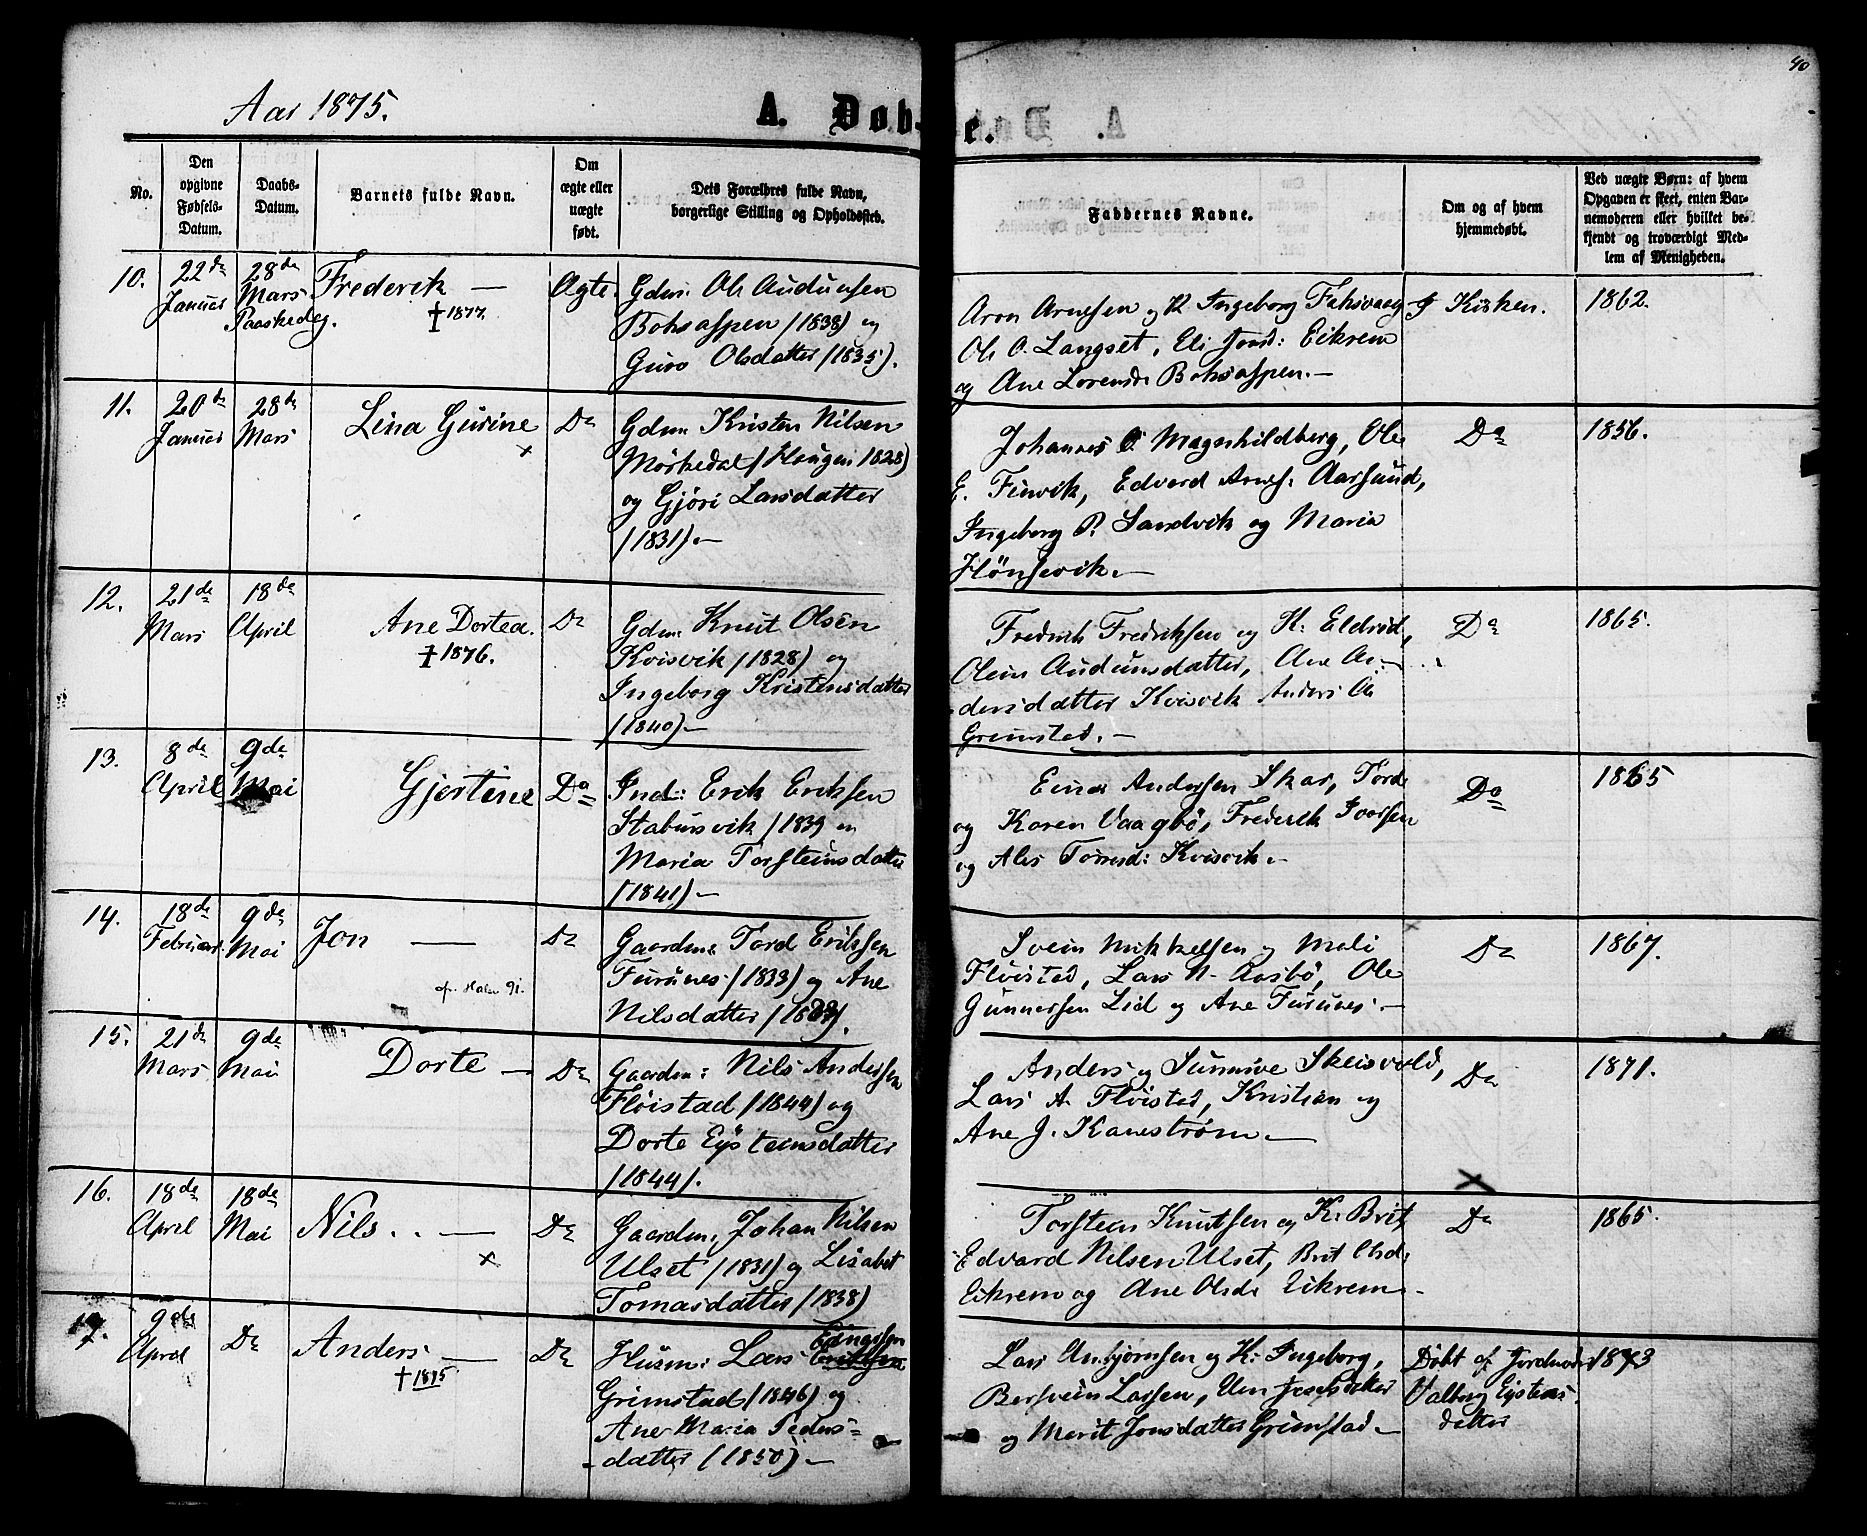 40
Aar 1875.
A. Døb-
e.
No.
Den
opgivne
Fødsels-
Datum.
Daabs-
Datum.
Barnets fulde Navn.
Om
ægte eller
uægte
født.
Dets Forældres fulde Navn,
borgerlige Stilling og Opholdssted.
Faddernes Navne.
Om og af hvem
hjemmedøbt.
Ved uægte Børn: af hvem
Opgaven er skeet, enten Bar-
nemoderen eller hvilket be-
kjendt og troværdigt Med-
lem af Menigheden.
10.
22de
Januar
28de
Mars
Paaskedag.
Frederik —
† 1877.
Ægte.
Gdm: Ole Audunsen
Boksaspen (1838) og
Guro Olsdatter (1835).
Aron Arnesen og K Ingeborg Faksvaag
Ole O. Langset, Eli Jonsd: Eikrem
og Ane Lorensd: Boksaspen.—
I Kirken.
1862.
11.
20de
Januar
28de
Mars
Lina Gurine
×
Do
Gdm: Kristen Nilsen
Mørkedal (Haugen 1828)
og Gjøri Larsdatter
(1831).—
Johannes O Magnhildberg, Ole
E. Finvik, Edvard Arnes: Aarsund,
Ingeborg P. Sandvik og Maria
Hønsevik.—
Do
1856.
12.
21de
Mars
18de
April
Ane Dortea.
† 1876.
Do
Gdm: Knut Olsen
Kvisvik (1828) og
Ingeborg Kristensdatter
(1840).—
Fredrik Fredriksen og K: Eldrid,
Olein Audunsdatter, Ane An-
dersdatter Kvisvik Anders Ole
Grimstad.—
Do
1865.
13.
8de
April
9de
Mai
Gjertine
Do
Ind: Erik Eriksen
Stabursvik (1839 og
Maria Torsteinsdatter
(1841).—
Einar Andersen Skar, Tord
og Karen Vaagbø, Frederik Ivarsen
og Ales Tøresd: Kvisvik.—
Do
1865
14.
18de
Februar
9de
Mai
Jon —
91.
Do
Gaardm: Tord Eriksen
Furunes (1833) og Ane
Nilsdatter (1833).
Svein Mikkelsen og Mali
Fløistad, Lars N. Aasbø, Ole
Gunnersen Lid og Ane Furunes.—
Do
1867.
15.
21de
Mars
9de
Mai
Dorte —
Do
Gaardm: Nils Andersen
Fløistad (1844) og
Dorte Eysteinsdatter
(1844).
Anders og Sunnive Skeisvold,
Lars A. Fløistad, Kristian og
Ane J. Kanestrøm.—
Do
1871.
×
16.
18de
April
18de
Mai
Nils. . —
×
Do
Gaardm: Johan Nilsen
Ulset (1831) og Lisabet
Tomasdatter (1838)
Torstein Knutsen og K. Brit,
Edvard Nilsen Ulset, Brit Olsd:
Eikrem og Ane Olsd: Eikrem.
Do
1865.
17.
9de
April
Do
Anders —
† 1895
Do
Husm: Lars Eriksen
Grimstad (1846) og
Ane Maria Peders-
datter (1850).—
Lars Anbjørnsen og K: Ingeborg,
Bersvein Larsen,
og Merit Jonsdatter Grimstad.—
Døbt af Jordmoder
Valborg Eysteins-
datter
1873